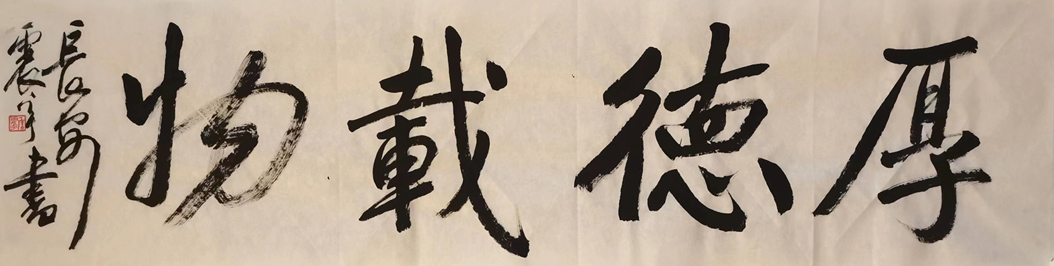 厚德載物
長安
震平書